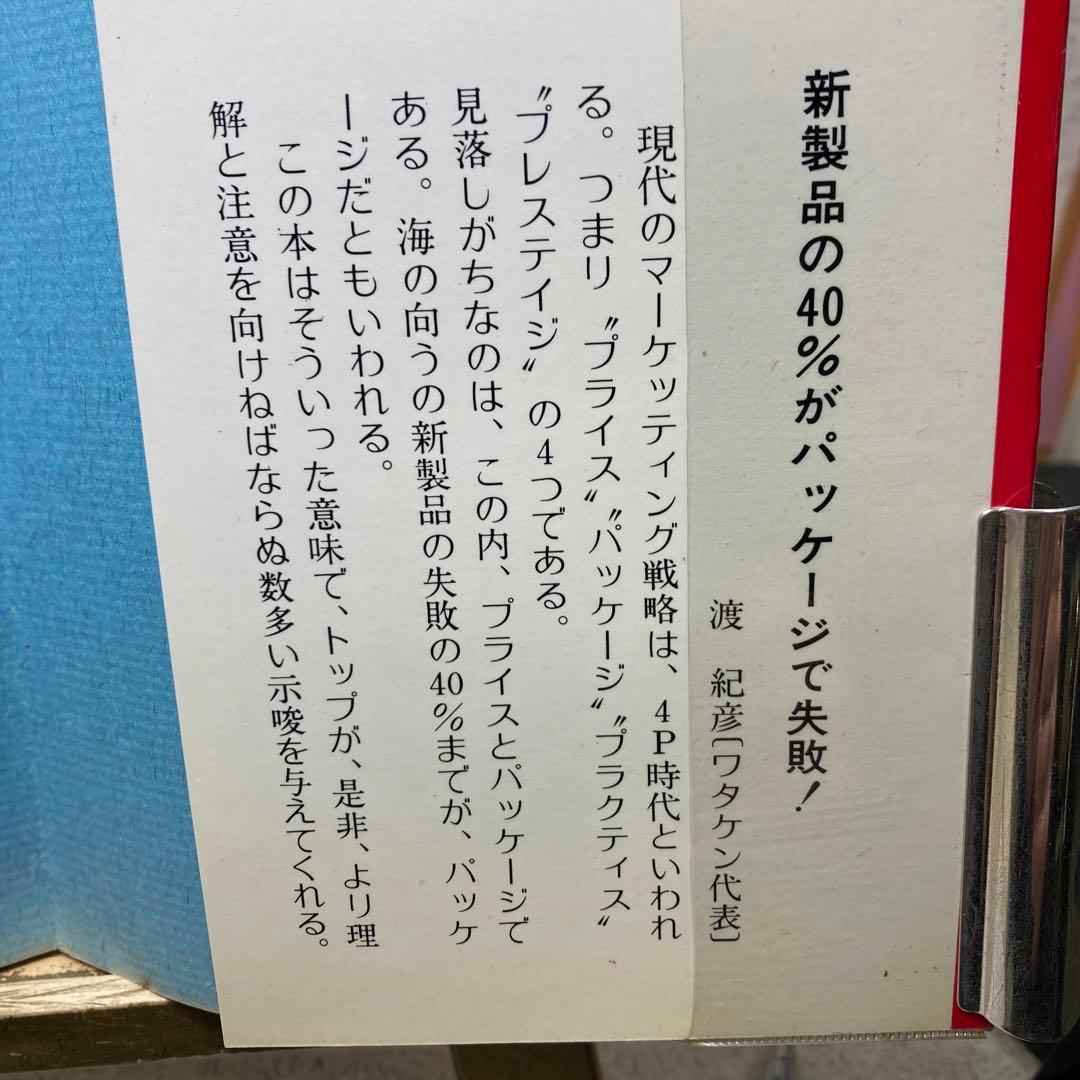 新製品の40%がパッケージで失敗！
渡　紀彦〔ワタケン代表〕
現代のマーケッティング戦略は、4P時代といわれ
る。つまり〝プライス〟〝パッケージ〟〝プラクティス〟
〝プレステイジ〟の4つである。
見落しがちなのは、この内、プライスとパッケージで
ある。海の向うの新製品の失敗の40%までが、パッケ
ージだともいわれる。
この本はそういった意味で、トップが、是非、より理
解と注意を向けねばならぬ数多い示唆を与えてくれる。